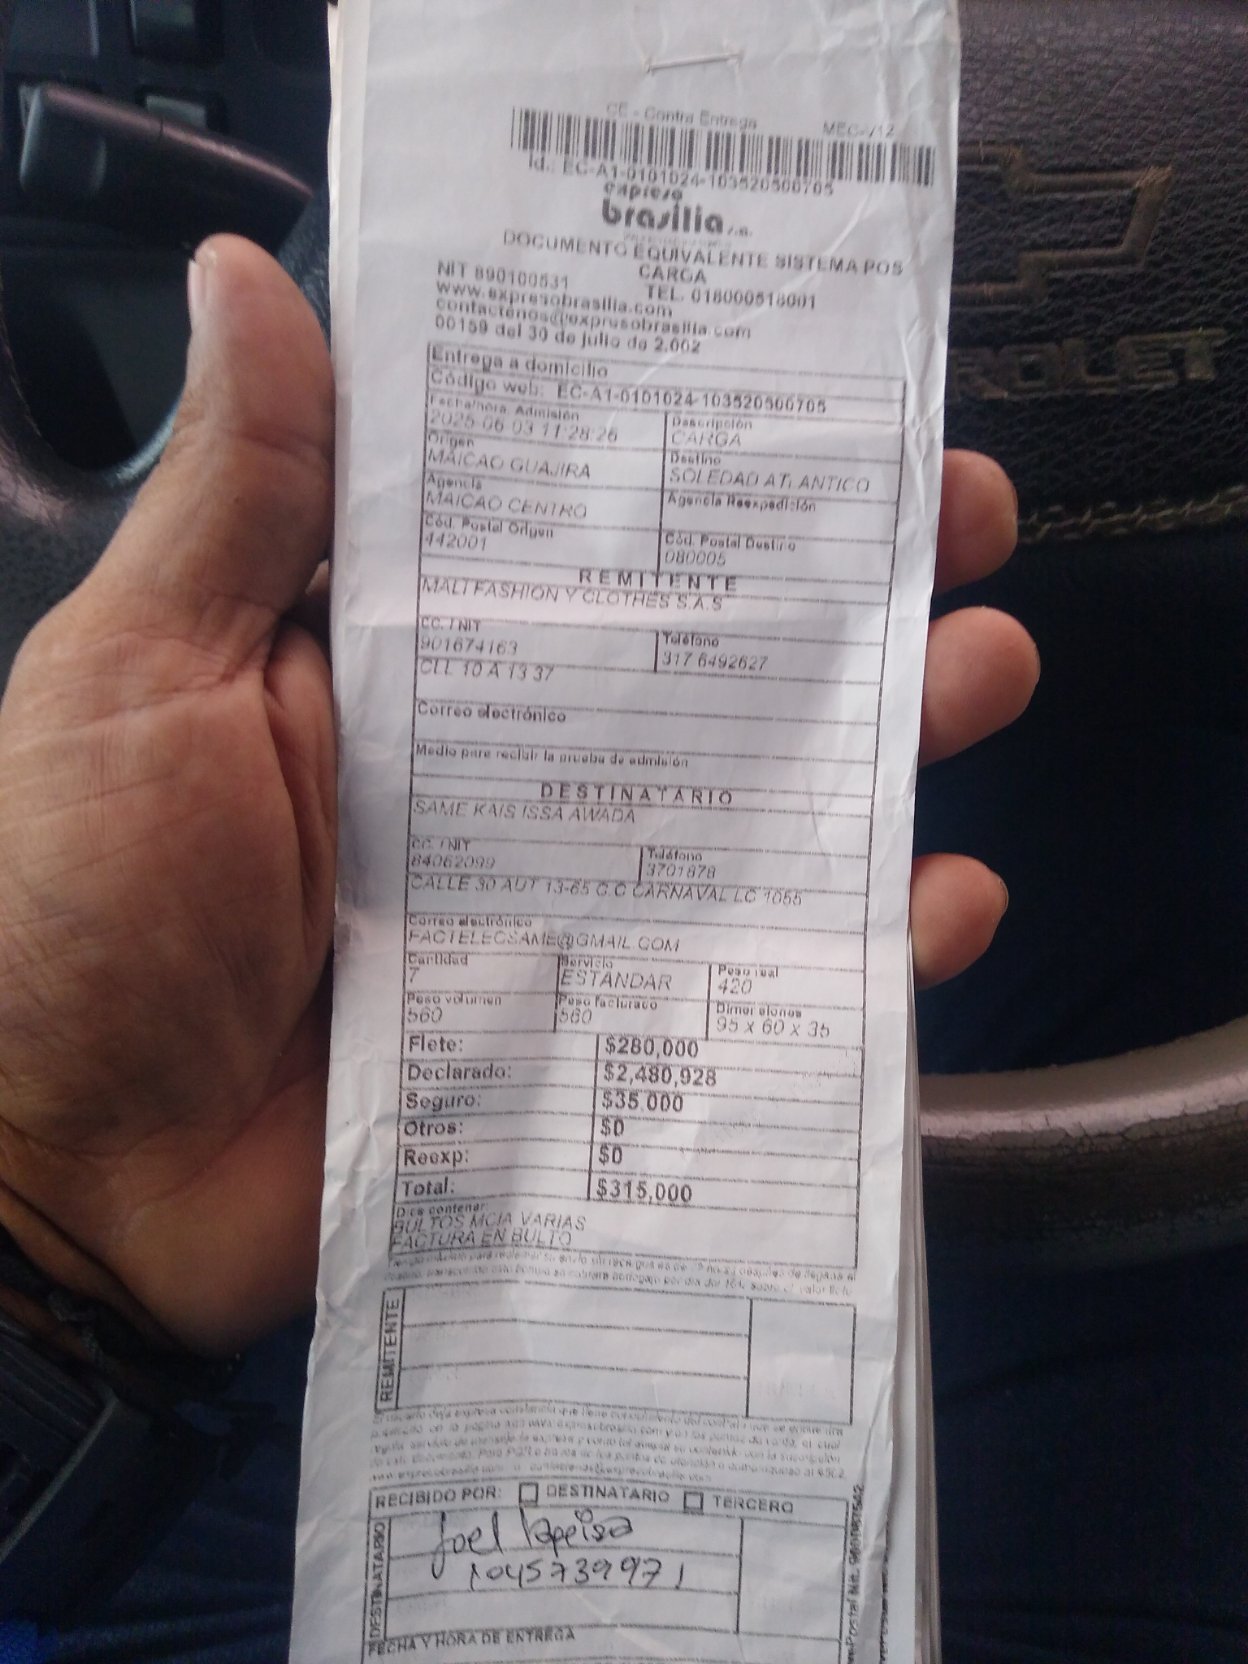 CE - Contra Entrega MEC-V12
Id.: EC-A1-0101024-103520500705
expreso
brasilia s.a.
DOCUMENTO EQUIVALENTE SISTEMA POS
CARGA
NIT 890100531 TEL. 018000518001
www.expresobrasilia.com
contactenos@expresobrasilia.com
00159 del 30 de julio de 2.002
Entrega a domicilio
Código web: EC-A1-0101024-103520500705
Fecha/hora Admisión Descripción
2025-06-03 11:28:26 CARGA
Origen Destino
MAICAO GUAJIRA SOLEDAD ATLANTICO
Agencia Agencia Reexpedición
MAICAO CENTRO
Cód. Postal Origen Cód. Postal Destino
442001 080005
REMITENTE
MALI FASHION Y CLOTHES S.A.S
CC. / NIT Teléfono
901674163 317 6492627
CLL 10 A 13 37
Correo electrónico
Medio para recibir la prueba de admisión
DESTINATARIO
SAME KAIS ISSA AWADA
CC. / NIT Teléfono
84062099 3701878
CALLE 30 AUT 13-65 C.C CARNAVAL LC 1055
Correo electrónico
FACTELECSAME@GMAIL.COM
Cantidad Servicio Peso real
7 ESTANDAR 420
Peso volumen Peso facturado Dimensiones
560 560 95 x 60 x 35
Flete: $280,000
Declarado: $2,480,928
Seguro: $35,000
Otros: $0
Reexp: $0
Total: $315,000
Dice contener:
BULTOS MCIA VARIAS
FACTURA EN BULTO
REMITENTE
RECIBIDO POR: DESTINATARIO TERCERO
DESTINATARIO
Joel
1045739971
FECHA Y HORA DE ENTREGA
CHEVROLET